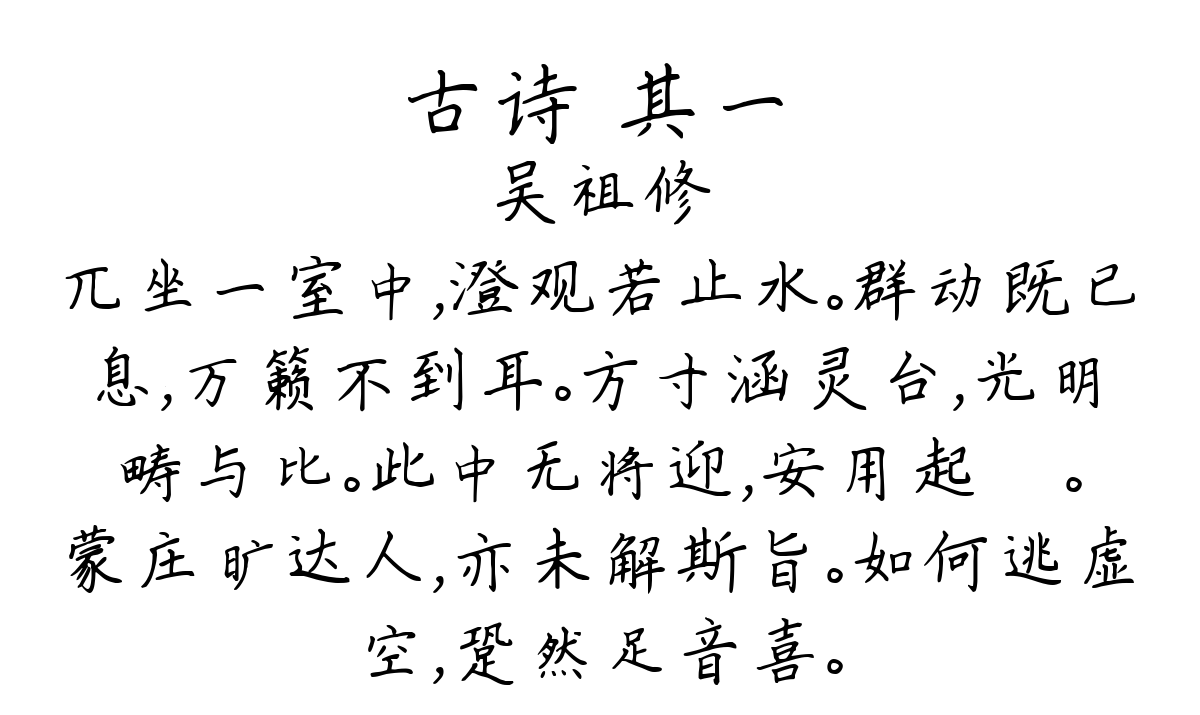 古诗 其一
吴祖修
兀坐一室中,澄观若止水。群动既已
息,万籁不到耳。方寸涵灵台,光明
畴与比。此中无将迎,安用起 。
蒙庄旷达人,亦未解斯旨。如何逃虚
空,跫然足音喜。